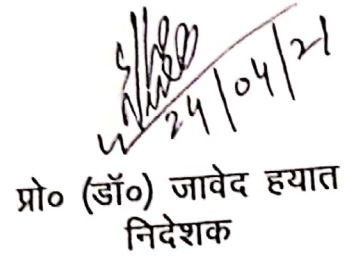 24/04/21
प्रो० (डॉ०) जावेद हयात
निदेशक